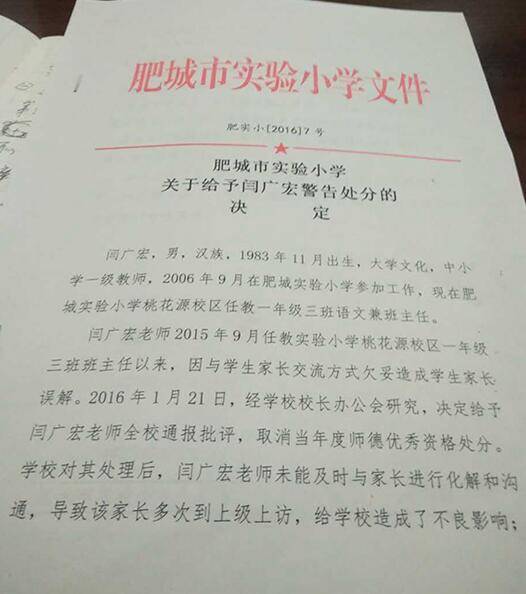 肥城市实验小学文件
肥实小[2016]7号
肥城市实验小学
关于给予闫广宏警告处分的
决 定
闫广宏，男，汉族，1983年11月出生，大学文化，中小
学一级教师，2006年9月在肥城实验小学参加工作，现在肥
城实验小学桃花源校区任教一年级三班语文兼班主任。
闫广宏老师2015年9月任教实验小学桃花源校区一年级
三班班主任以来，因与学生家长交流方式欠妥造成学生家长
误解。2016年1月21日，经学校校长办公会研究，决定给予
闫广宏老师全校通报批评，取消当年度师德优秀资格处分。
学校对其处理后，闫广宏老师未能及时与家长进行化解和沟
通，导致该家长多次到上级上访，给学校造成了不良影响；